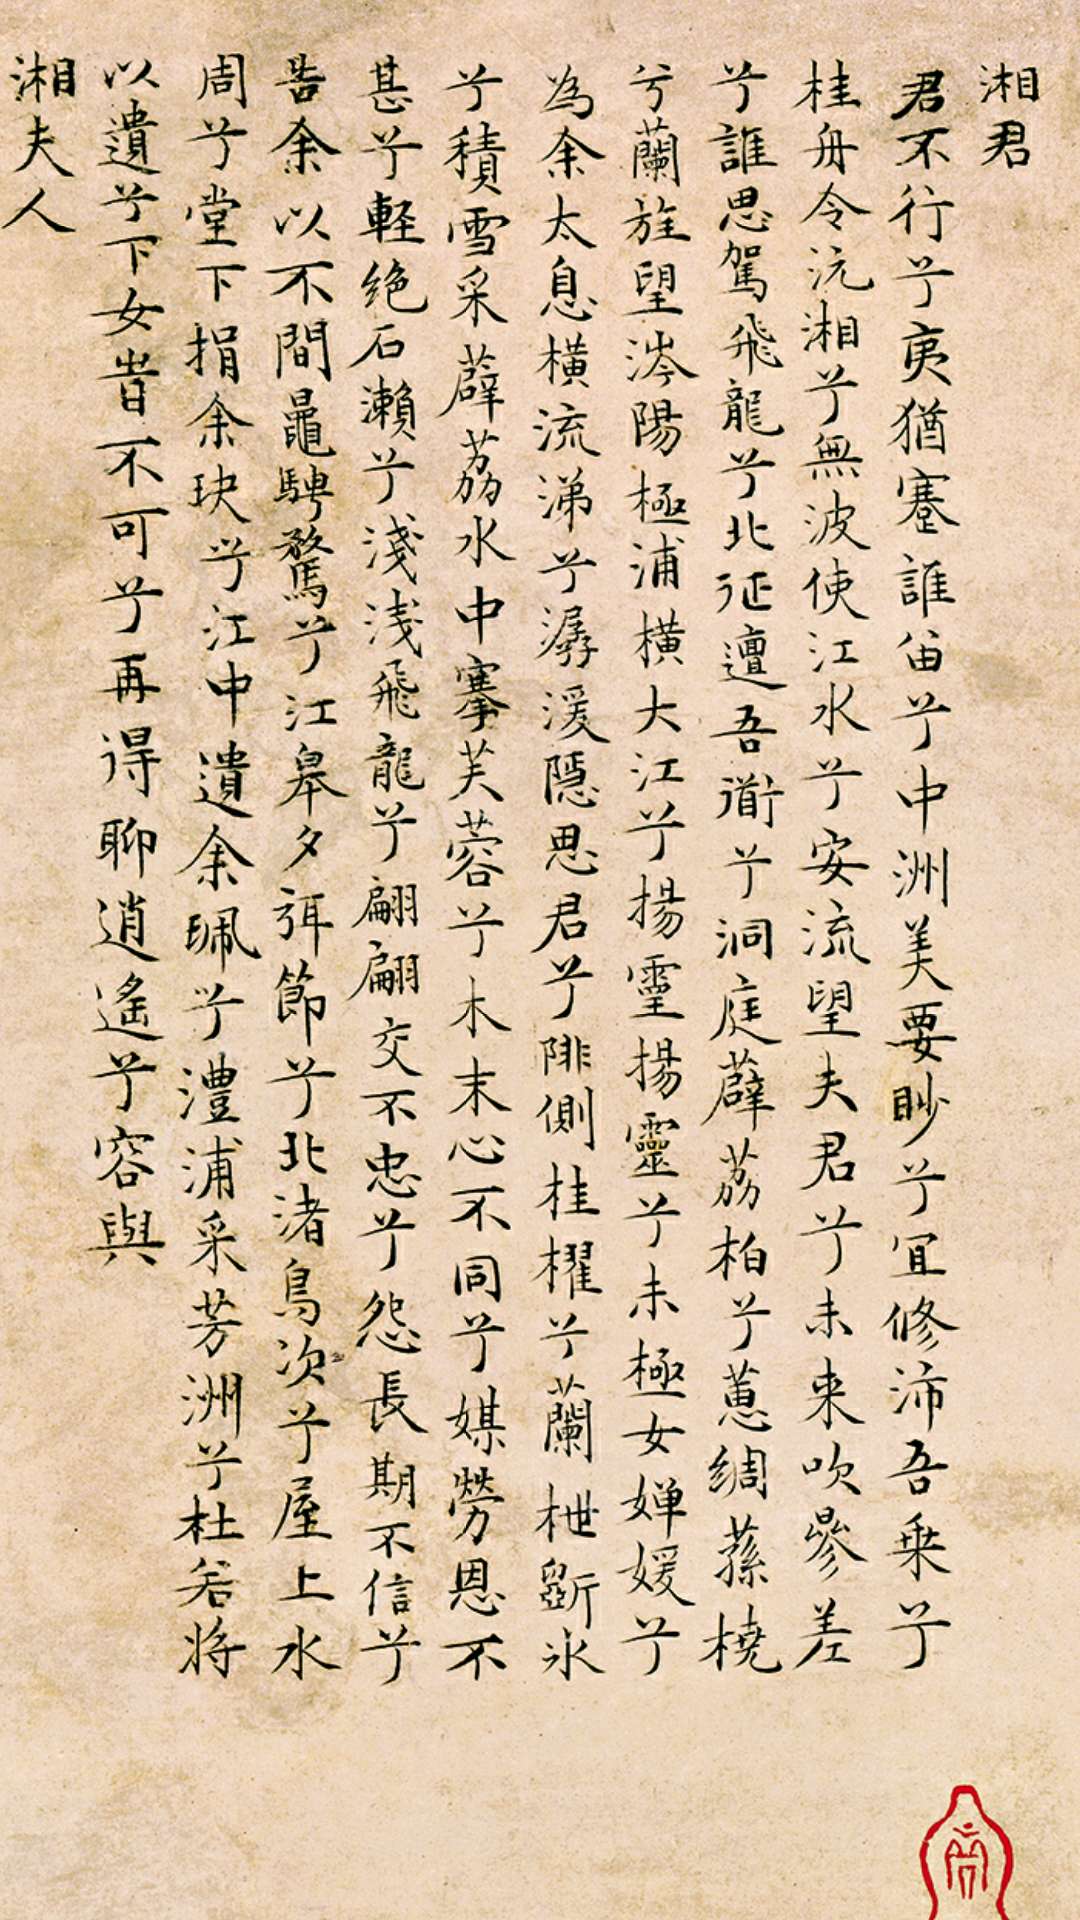 湘君
君不行兮夷猶蹇誰㽞兮中洲美要眇兮宜修沛吾乗兮
桂舟令沅湘兮無波使江水兮安流望夫君兮未来吹參差
兮誰思駕飛龍兮北征邅吾衜兮洞庭薜荔柏兮蕙綢蓀橈
兮蘭旌望涔陽極浦橫大江兮揚靈揚靈兮未極女嬋媛兮
為余太息橫流涕兮潺湲隠思君兮陫側桂櫂兮蘭枻斲冰
兮積雪采薜荔水中搴芙蓉兮木末心不同兮媒勞恩不
甚兮軽绝石瀨兮淺淺飛龍兮翩翩交不忠兮怨長期不信兮
告余以不間鼂騁騖兮江皋夕弭節兮北渚鳥次兮屋上水
周兮堂下捐余玦兮江中遺余珮兮澧浦采芳洲兮杜若将
以遺兮下女旹不可兮再得聊逍遙兮容與
湘夫人